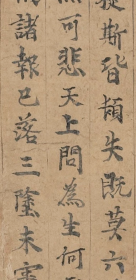 提斯皆頓失既莫六
可悲天上問為生何
諸報已落三塗未